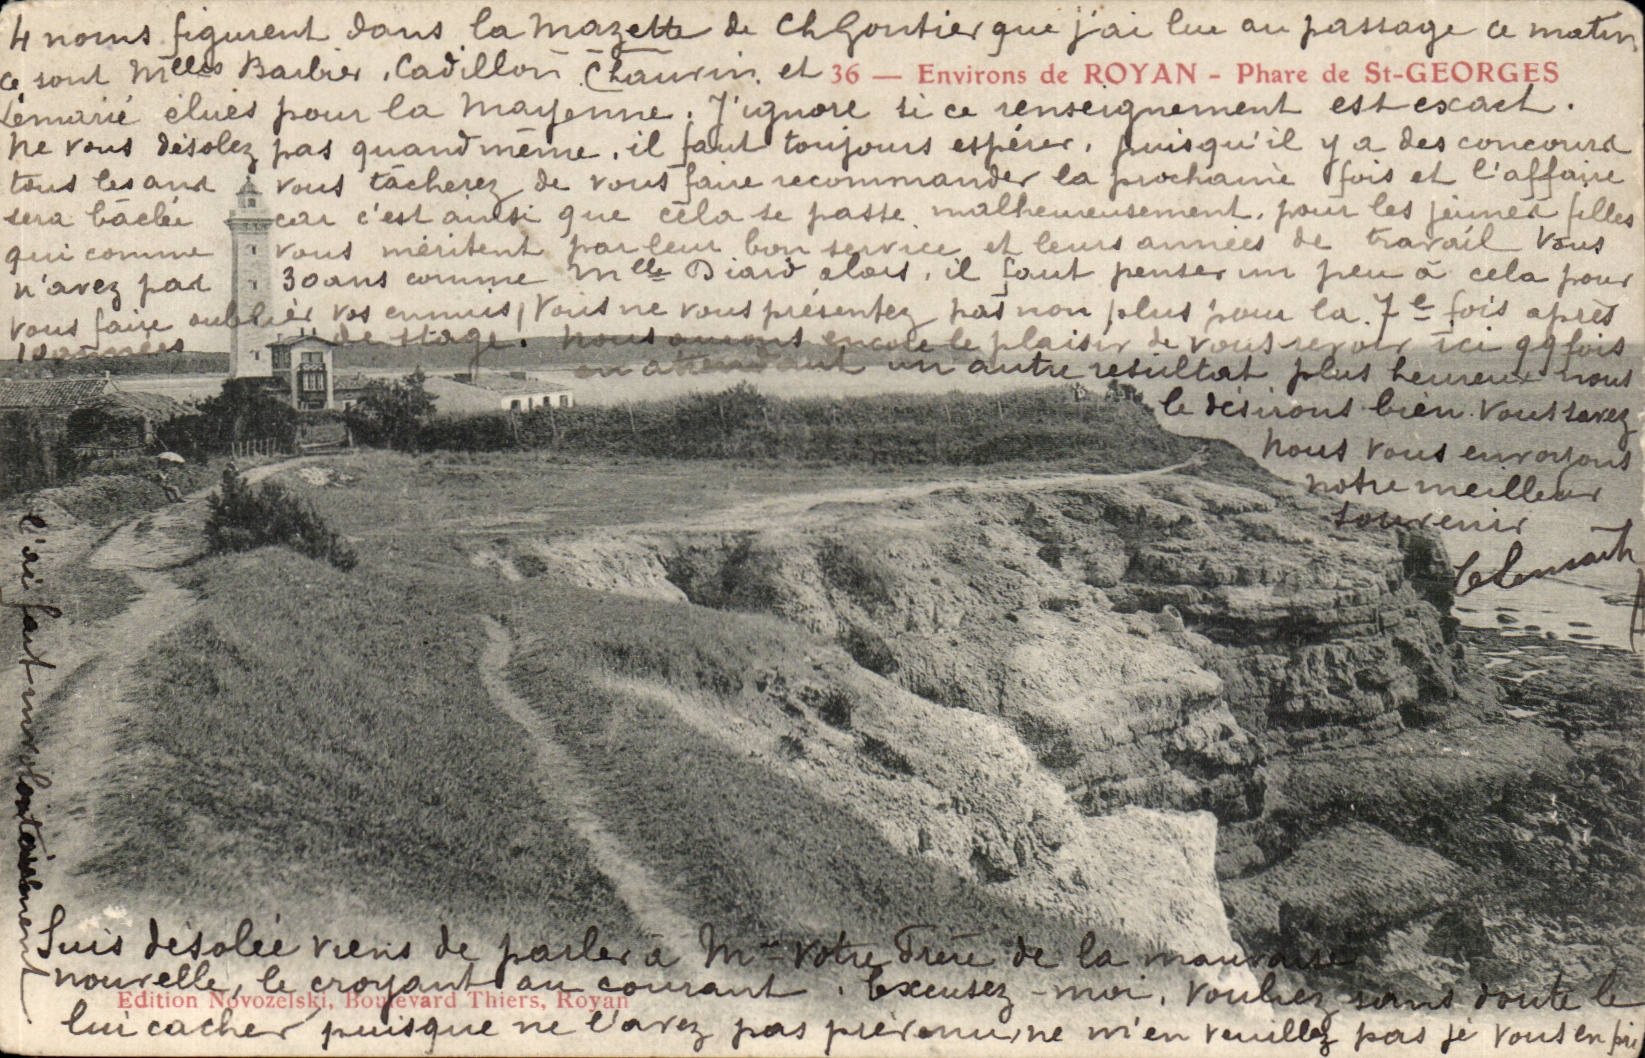 4 noms figurent dans la Mazette de Ch Gontier que j'ai lue au passage ce matin
ce sont Melles Barbier, Cadillon Chauvin et
36 — Environs de ROYAN - Phare de St-GEORGES
Lemarié élues pour la Mayenne. J'ignore si ce renseignement est exact.
Ne vous désolez pas quand même, il faut toujours espérer, puisqu'il y a des concours
tous les ans vous tâcherez de vous faire recommander la prochaine fois et l'affaire
sera bâclée car c'est ainsi que cela se passe malheureusement, pour les jeunes filles
qui comme vous méritent par leur bon service et leurs années de travail Vous
n'avez pas 30 ans comme Mlle Diard alors, il faut penser un peu à cela pour
vous faire oublier vos ennuis, Vous ne vous présentez pas non plus pour la 7e fois après
10 années de stage. Nous aurons encore le plaisir de vous revoir ici qq fois
en attendant un autre résultat plus heureux nous
le désirons bien. Vous savez
Nous vous envoyons
notre meilleur
souvenir
l'ai fait involontairement
Suis désolée viens de parler à Mr votre Frère de la mauvaise
nouvelle, le croyant au courant. Excusez-moi, vouliez sans doute le
Edition Novozelski, Boulevard Thiers, Royan
lui cacher puisque ne l'avez pas prévenu, ne m'en veuillez pas je vous en pri